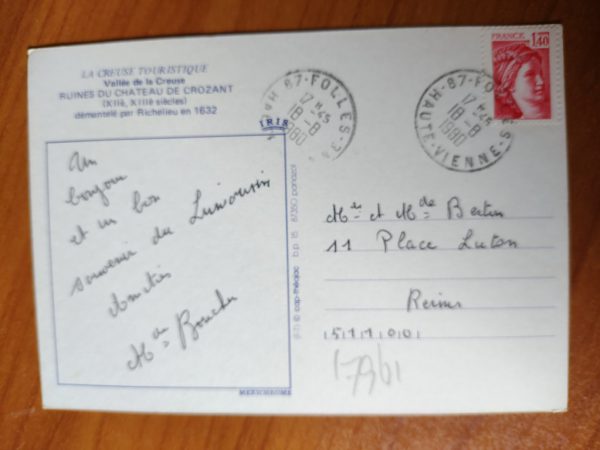 LA CREUSE TOURISTIQUE
Vallée de la Creuse
RUINES DU CHATEAU DE CROZANT
(XIIè, XIIIè siècles)
démentelé par Richelieu en 1632
Un
bonjour
et un bon
souvenir du Limousin
Amitiés
Mde Boucher
IRIS
MEXICHROME
cap-théojac b.p. 15 87350 panazol
87-FOLLES
17 H 45
18-8
1980
87-FOLLES
HAUTE-VIENNE
17 H 45
18-8
1980
FRANCE
1,40
Mr et Mde Bertin
11 Place Luton
Reims
51100
17961